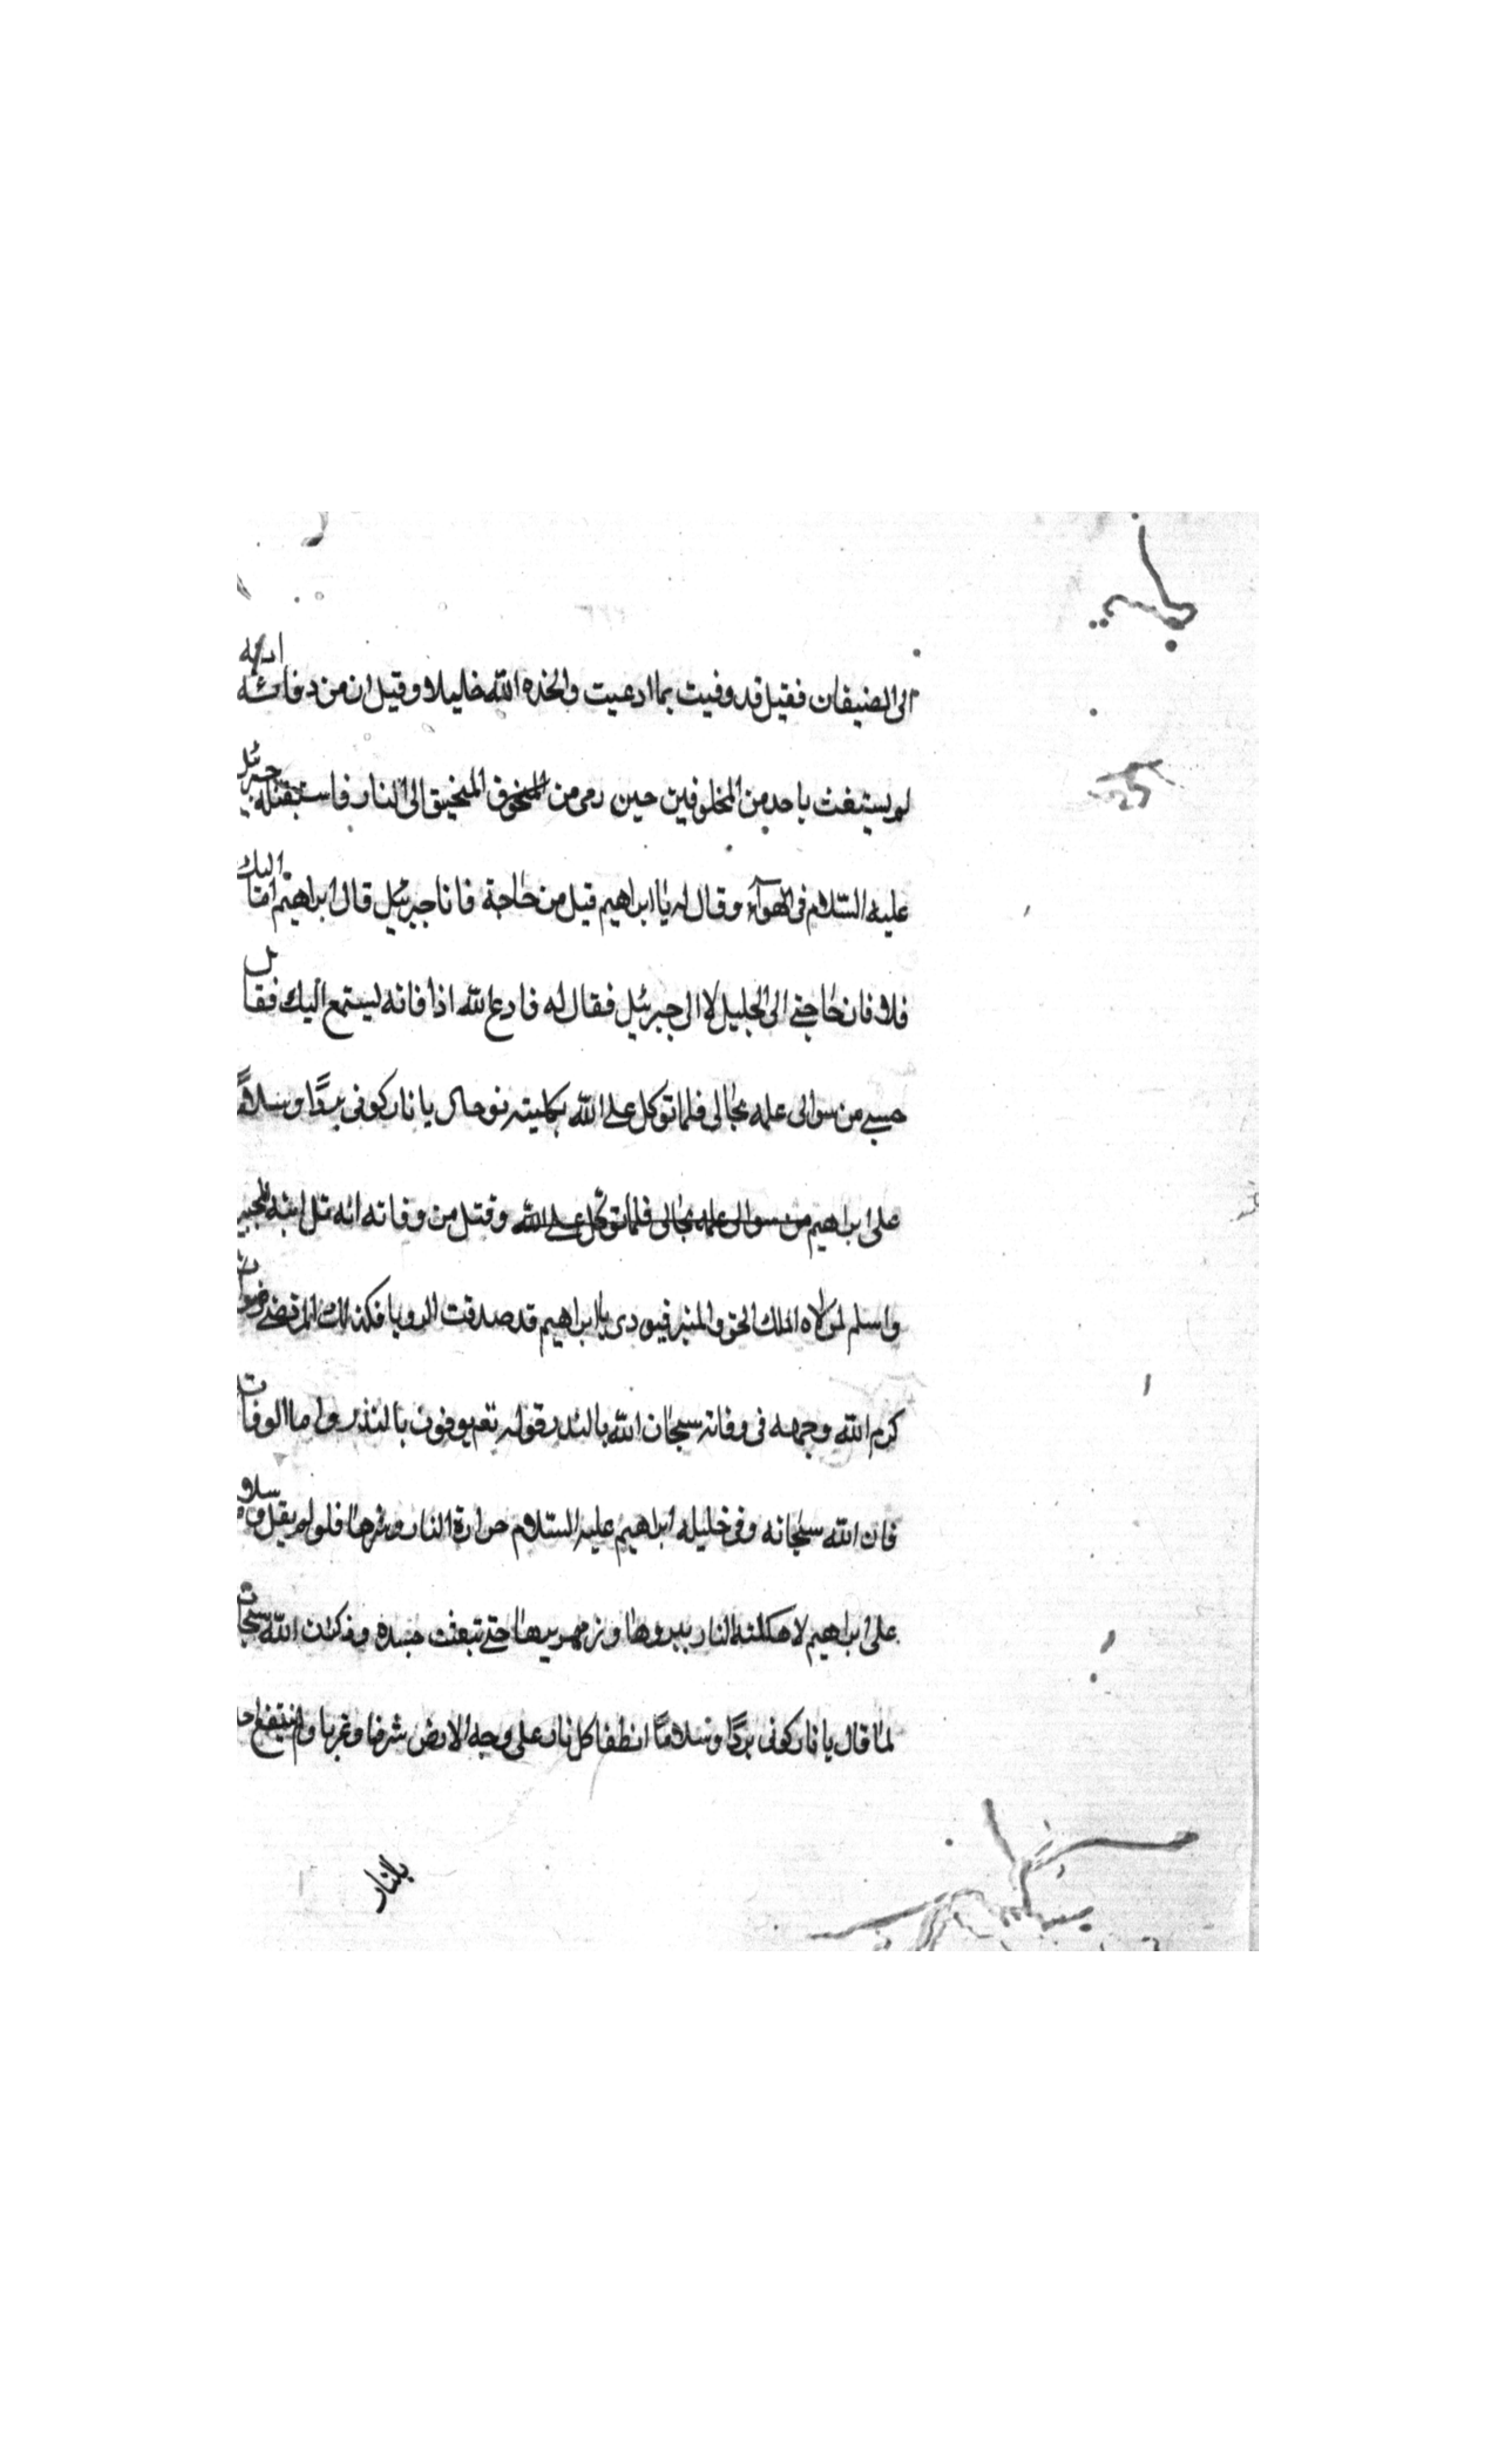 الى الضيفان فقيل قد وفيت بما ادعيت واتخذه الله خليلا وقيل ان من وفائه انه
لم يستغث باحد من المخلوقين حين رمى من المنجنيق الى النار فاستقبله جبرئيل
عليه السّلام فى الهوآء وقال له يا ابراهيم قيل من حاجة فانا جبرئيل قال ابراهيم امّا اليك
فلا فان حاجتي الى الجليل لا الى جبرئيل فقال له فادع الله اذا فانه ليستمع اليك فقال
حسبي من سوالى علمه بحالى فلما توكل على الله بكليته نودى يا نار كونى بردًا وسلامًا
على ابراهيم من سوالى علمه بحالى فلما توكل على الله وقيل من وفاته انه تل ابنه للجبين
واسلم لمولاه الملك الحق فنودى يا ابراهيم قد صدقت الرويا فكذلك المرتضى
كرم الله وجهه فى وفاته سبحان الله بالنذر قوله تعم يوفون بالنذر واما الوفات
فان الله سبحانه وقى خليله ابراهيم عليه السّلام حرارة النار وشرها فلو لم يقل وسلاما
على ابراهيم لاهلكته النار ببردها وزمهريرها حتى جسده وقد كان الله سبحان
لما قال يا نار كونى بردًا وسلامًا انطفا كل نار على وجه الارض شرقا وغربا ولم ينتفع احد
بالنار